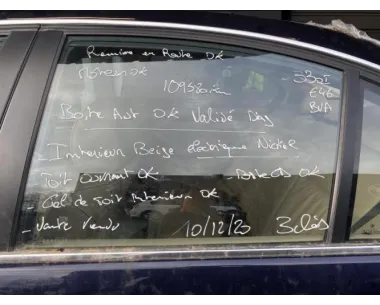 Remise en Route OK
Moteur OK
109580 km
- 330I
E46
BVA
Boite Aut OK Validé Day
- Interieur Beige électrique Nickel
Toit ouvrant OK
- Porte OK
- Ciel de Toit Interieur OK
- Jante
10/12/20
3 clés